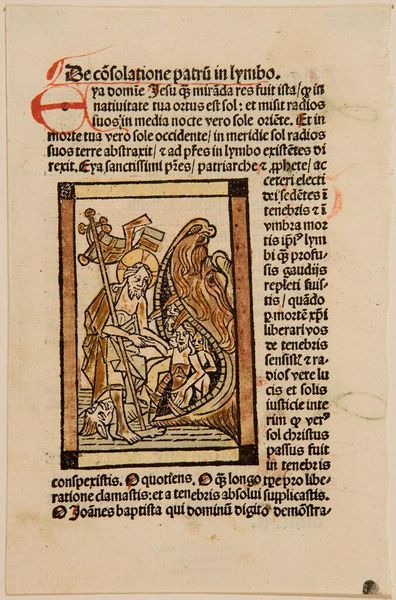 De cõsolatione patrũ in lymbo.
Eya domĩe Jesu q̃ mirãda res fuit ista/ qꝫ in
natiuitate tua ortus est sol: et misit radios
suos: in media nocte vero sole oriẽte. Et in
morte tua vero sole occidente/ in meridie sol radios
suos terre abstraxit/ ⁊ ad p̃fes in lymbo existẽtes di
rexit. Eya sanctissimi p̃res/ patriarche ⁊ ꝓphete/ ac
ceteri electi
dei sedẽtes ĩ
tenebris ⁊ ĩ
vmbra mor
tis ip̃iꝰ lym
bi q̃ꝫ profu⸗
sis gaudijs
repleti fuis⸗
tis/ quãdo
ꝑ mortẽ xp̃i
liberari vos
de tenebris
sensistꝭ ⁊ ra⸗
dios vere lu
cis et solis
iusticie inte
rim qꝫ verꝰ
sol christus
passus fuit
in tenebris
conspexistis. O quotiens. O q̃ꝫ longo tꝑe pro libe⸗
ratione clamastis: et a tenebris absolui supplicastis.
O Joãnes baptista qui dominũ digito demõstra⸗